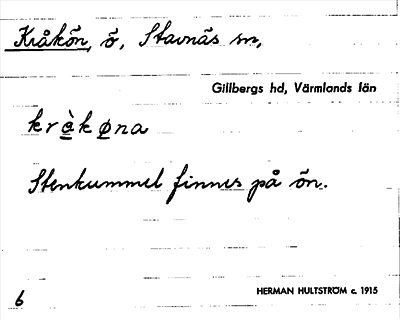 Kråkön, ö, Stavnäs sn,
Gillbergs hd, Värmlands län
krà̱kø̱na
Stenkummel finnes på ön.
6 HERMAN HULTSTRÖM c. 1915